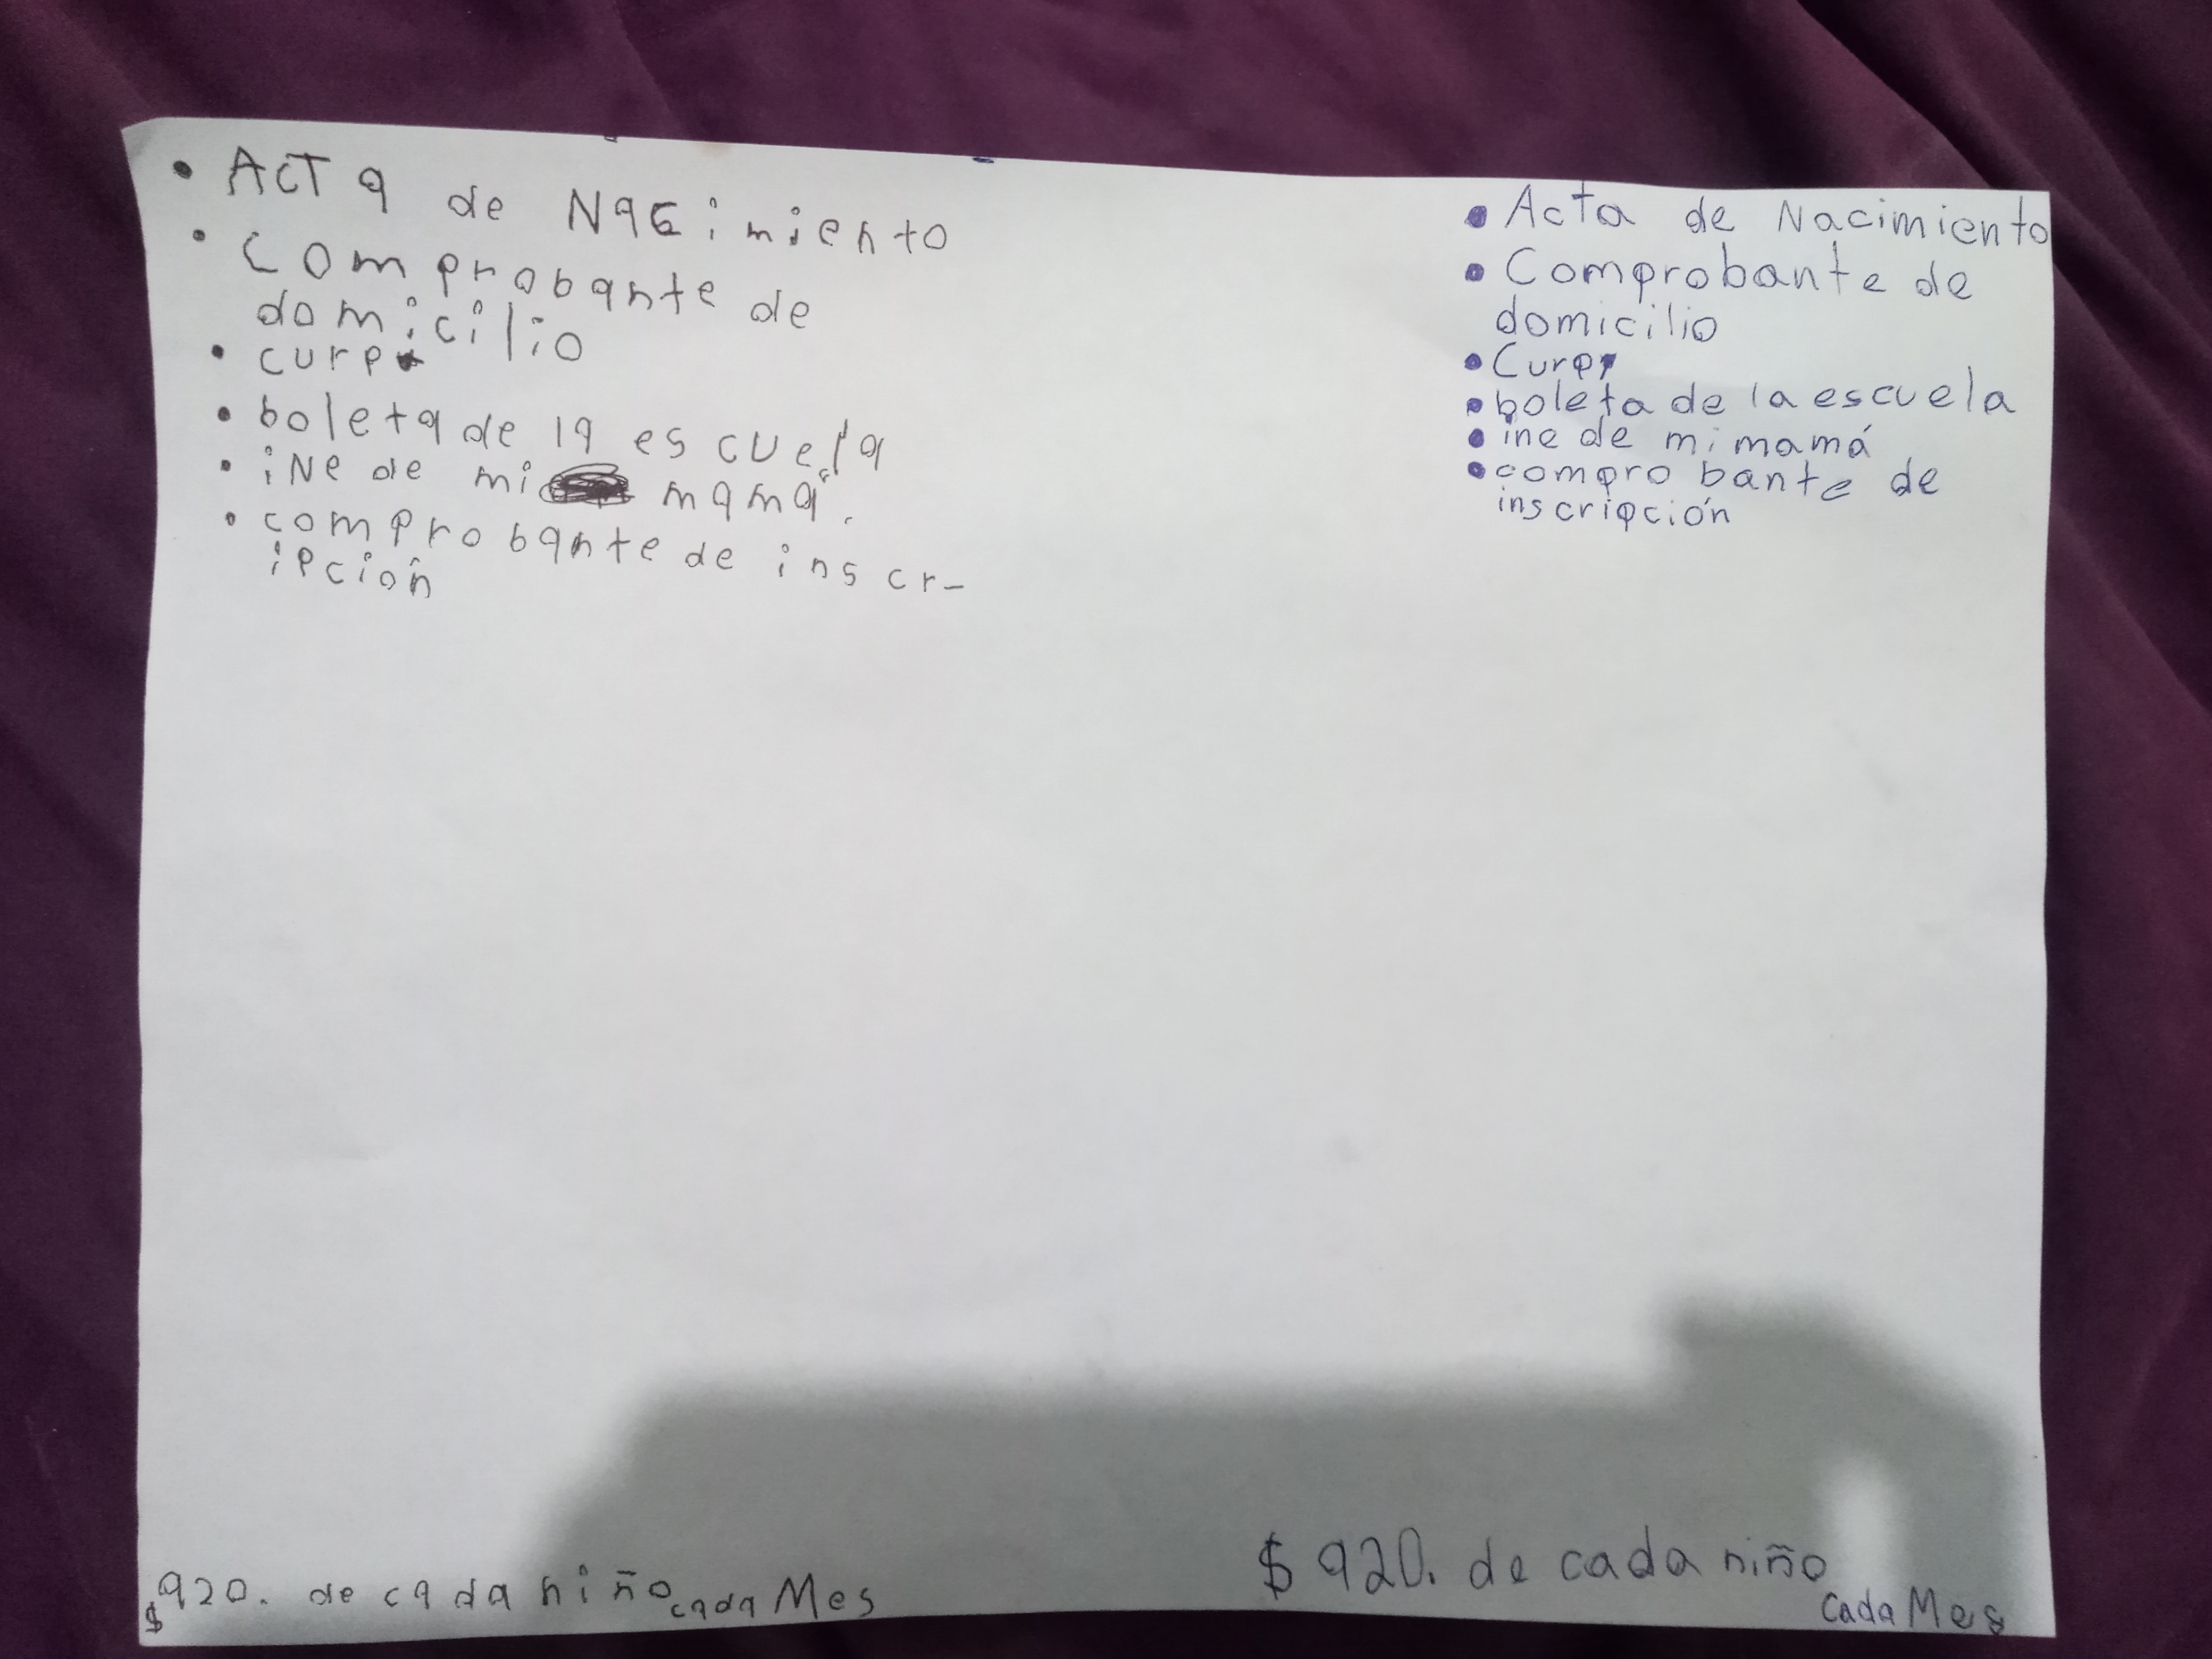 • ACTa de Nacimiento
• Comprobante de
domicilio
• curp
• boleta de la escuela
• iNe de mi mamá.
• comprobante de inscr-
ipción
• Acta de Nacimiento
• Comprobante de
domicilio
• Curp
• boleta de la escuela
• ine de mi mamá
• compro bante de
inscripción
$920. de cada niño cada Mes
$920. de cada niño
Cada Mes